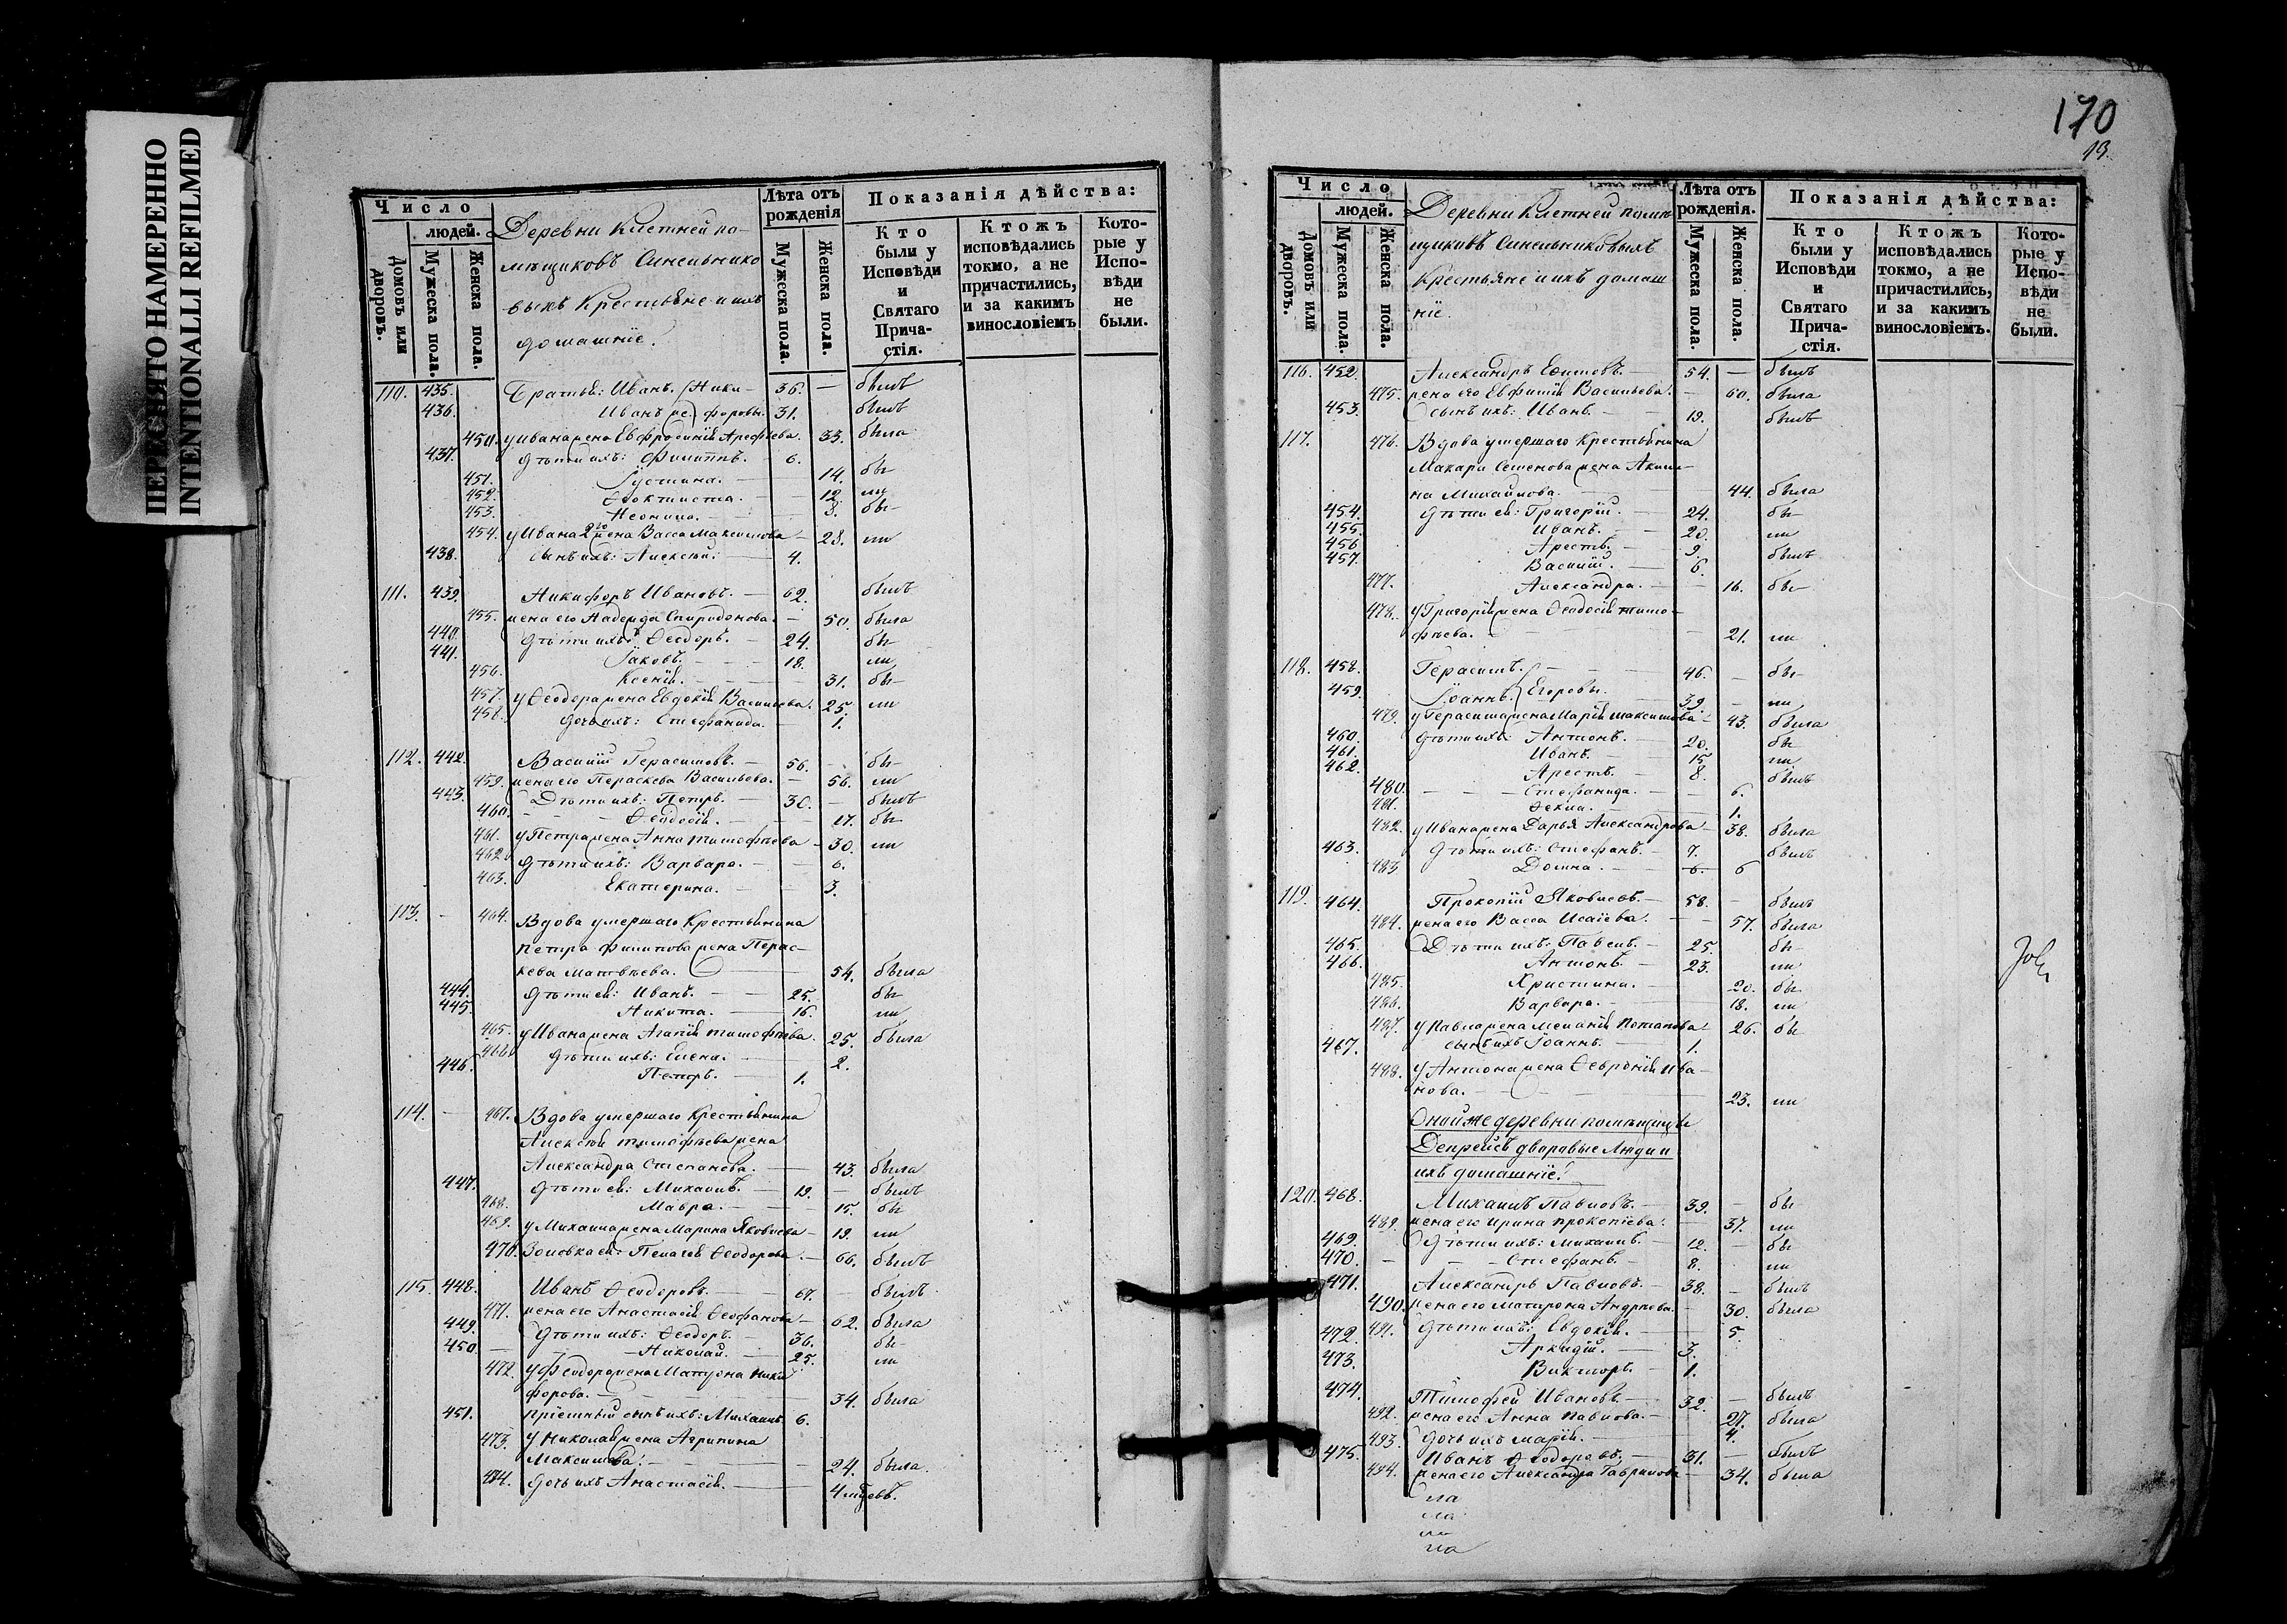 НЕРЕСНЯТО НАМЕРЕННО
INTENTIONALLI REFILMED
Число
людей.
Домовъ или дворовъ.
Мужеска пола.
Женска пола.
Деревни Клетней по-
мѣщиковъ Синельнико
выхъ Крестьяне и ихъ
домашніе.
Лѣта отъ рожденія
Мужеска пола.
Женска пола.
Показанія дѣйства:
Кто были у Исповѣди и Святаго Причастія.
Ктожъ исповѣдались токмо, а не причастились, и за какимъ винословіемъ
Которые у Исповѣди не были.
110. 435. Братья: Иванъ. Ники- 36. — былъ
436. Иванъ 2й форовы. 31. былъ
450. у Ивана жена Евфросинія Арефьева. 33. была
437. дѣти ихъ: Филиппъ. 6.
451. Іустина. 14. бы-
452. Ѳеоктиста. 12. ли
453. Неонила. 8. бы-
454. у Ивана 2го жена Васса Максимова 28. ли
438. сынъ ихъ: Алексѣй. 4.
111. 439. Никифоръ Ивановъ. 62. былъ
455. жена его Надежда Спиридонова. 50. была
440. дѣти ихъ: Ѳеодоръ. 24. бы-
441. Іаковъ. 18. ли
456. Ксенія. 31. бы-
457. у Ѳеодора жена Евдокія Васильева. 25. ли
458. дочь ихъ: Стефанида. 1.
112. 442. Василій Герасимовъ. 56. — бы-
459. жена его Параскева Васильева. 56. ли
443. Дѣти ихъ: Петръ. 30. — былъ
460. Ѳеодосія. 17. бы-
461. у Петра жена Анна Тимофѣева 30. ли
462. дѣти ихъ: Варвара. 6.
463. Екатерина. 3.
113. — 464. Вдова умершаго Крестьянина
Петра Филипова жена Парас-
кева Матвѣева. 54. была
444. дѣти ея: Иванъ. 25. бы-
445. Никита. 16. ли
465. у Ивана жена Агапія Тимофѣева. 25. была
466. дѣти ихъ: Елена. 2.
446. Петръ. 1.
114. — 467. Вдова умершаго Крестьянина
Алексѣя Тимофѣева жена
Александра Степанова. 43. была
447. дѣти ея: Михаилъ. 19. — былъ
468. Мавра. 15. бы
469. у Михаила жена Марина Яковлева 19. ли
470. Золовка ея: Пелагея Ѳеодорова. 66. былъ
115. 448. Иванъ Ѳеодоровъ. 67. — былъ
471. жена его Анастасія Ѳеофанова 62. была
449. дѣти ихъ: Ѳеодоръ. 36. бы-
450. Николай. 25. ли
472. у Ѳеодора жена Матрона Ники
форова. 34. была
451. пріемный сынъ ихъ: Михаилъ 6.
473. у Николая жена Агрипина
Максимова. 24. была.
474. дочь ихъ Анастасія. 4 мѣсъ.
170
13.
Число
людей.
Домовъ или дворовъ.
Мужеска пола.
Женска пола.
Деревни Клетней помѣ
щиковъ Синельниковыхъ
Крестьяне и ихъ домаш
ніе.
Лѣта отъ рожденія.
Мужеска пола.
Женска пола.
Показанія дѣйства:
Кто были у Исповѣди и Святаго Причастія.
Ктожъ исповѣдались токмо, а не причастились, и за какимъ винословіемъ.
Которые у Исповѣди не были.
116. 452. Александръ Ефимовъ. 54. — былъ
475. жена его Евфимія Васильева. 60. была
453. сынъ ихъ: Иванъ. 19. былъ
117. 476. Вдова умершаго Крестьянина
Макари Семенова жена Акили-
на Михайлова. 44. была
454. дѣти ея: Григорій. 24. бы-
455. Иванъ. 20. ли
456. Арестъ. 9. былъ
457. Василій. 6.
477. Александра. 16. бы-
478. у Григорія жена Ѳеодосія Тимо-
фѣева. 21. ли
118. 458. Герасимъ. 46. — бы-
459. Іоаннъ. Егоровы. 39. — ли
479. у Герасима жена Марія Максимова 43. была
460. дѣти ихъ: Антонъ. 20. бы
461. Иванъ. 15. ли
462. Арестъ. 8. былъ
480. Стефанида. 6.
481. Ѳекла. 1.
482. у Ивана жена Дарья Александрова 38. была
463. дѣти ихъ: Стефанъ. 7. былъ
483 Домна. 6. 6
119. 464. Прокопій Яковлевъ. 58. — былъ
484. жена его Васса Исаіева. 57. была
465. Дѣти ихъ: Павелъ. 25. бы-
466. Антонъ. 23. ли
485. Христина. 20. бы-
486. Варвара. 18. ли
487. у Павла жена Меланія Потапова 26. бы
467. сынъ ихъ Іоаннъ. 1.
488. у Антона жена Ѳевронія Ива-
нова. 23. ли
Оной же деревни помѣщицы
Депрейсъ дворовые Люди и
ихъ домашніе:
120. 468. Михаилъ Павловъ. 39. бы
489. жена его Ирина Прокопіева. 37. ли
469. дѣти ихъ: Михаилъ. 12. — бы
470. Стефанъ. 8. ли
471. Александръ Павловъ. 38. — былъ
490. жена его Матрона Андрѣева. 30. была
472. 491. дѣти ихъ: Евдокія. 5.
473. Аркадій. 3.
Викторъ. 1.
474. Тимофей Ивановъ 32. — былъ
492. жена его Анна Павлова. 27. была
493. дочь ихъ Марія. 4.
475. Иванъ Ѳеодоровъ. 31. — былъ
494. жена его Александра Гаврилова 34. была